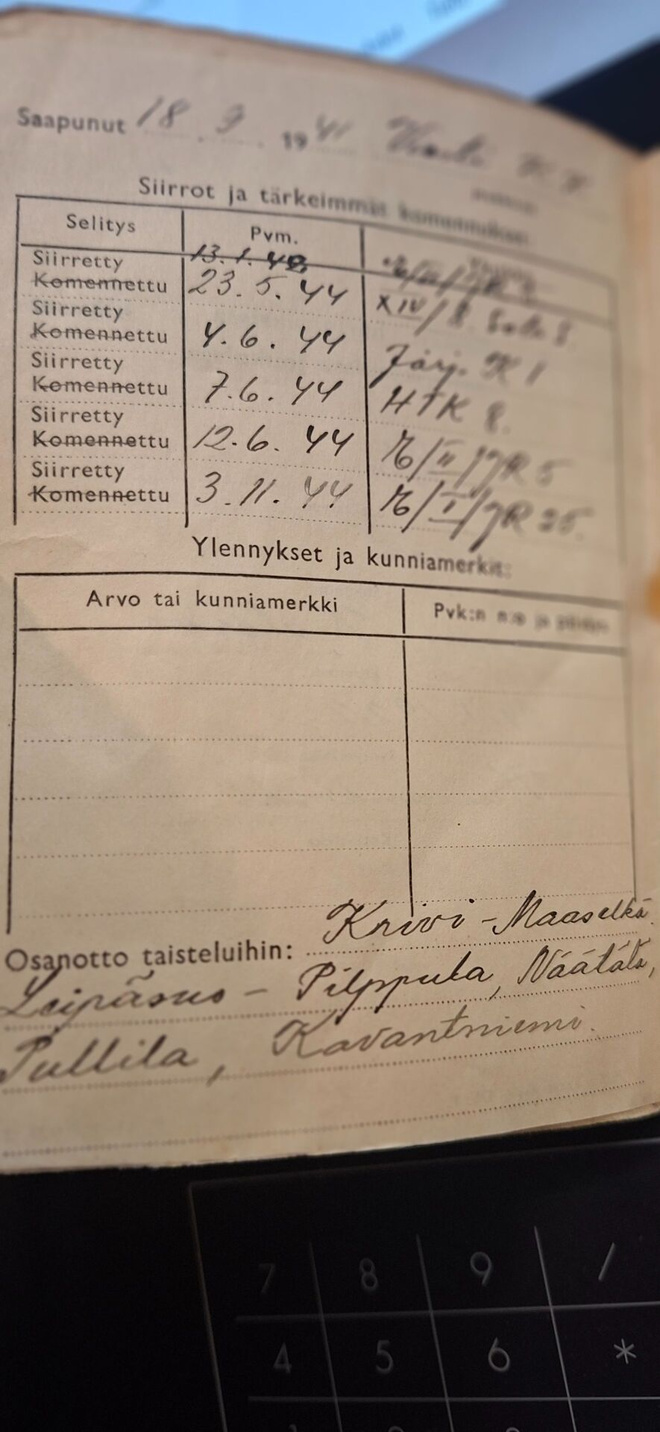 Saapunut 18.9.1941
Siirrot ja tärkeimmät komennukset
Selitys Pvm.
Siirretty 13.1.42
Komennettu 23.5.44 XIV/
Siirretty
Komennettu 4.6.44 Järj. K 1
Siirretty
Komennettu 7.6.44 HTK 8.
Siirretty
Komennettu 12.6.44 /II/JR 5
Siirretty
Komennettu 3.11.44 /I/JR 25.
Ylennykset ja kunniamerkit:
Arvo tai kunniamerkki Pvk:n n:o ja päiväys
Krivi - Maaselkä
Osanotto taisteluihin:
Leipäsuo - Pilppula, Näätälä,
Pullila, Kavantniemi.
7 8 9 /
4 5 6 *